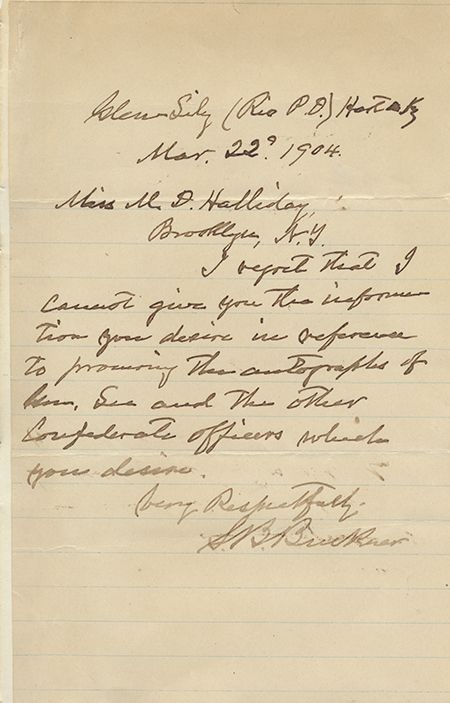 Glen Lily (Rio P.O.) Hart Co Ky
Mar. 22ᵈ 1904.
Miss M. D. Halliday,
Brooklyn, N.Y.
I regret that I
cannot give you the informa
tion you desire in reference
to procuring the autographs of
Gen. Lee and the other
Confederate officers which
you desire.
Very Respectfully.
S. B. Buckner